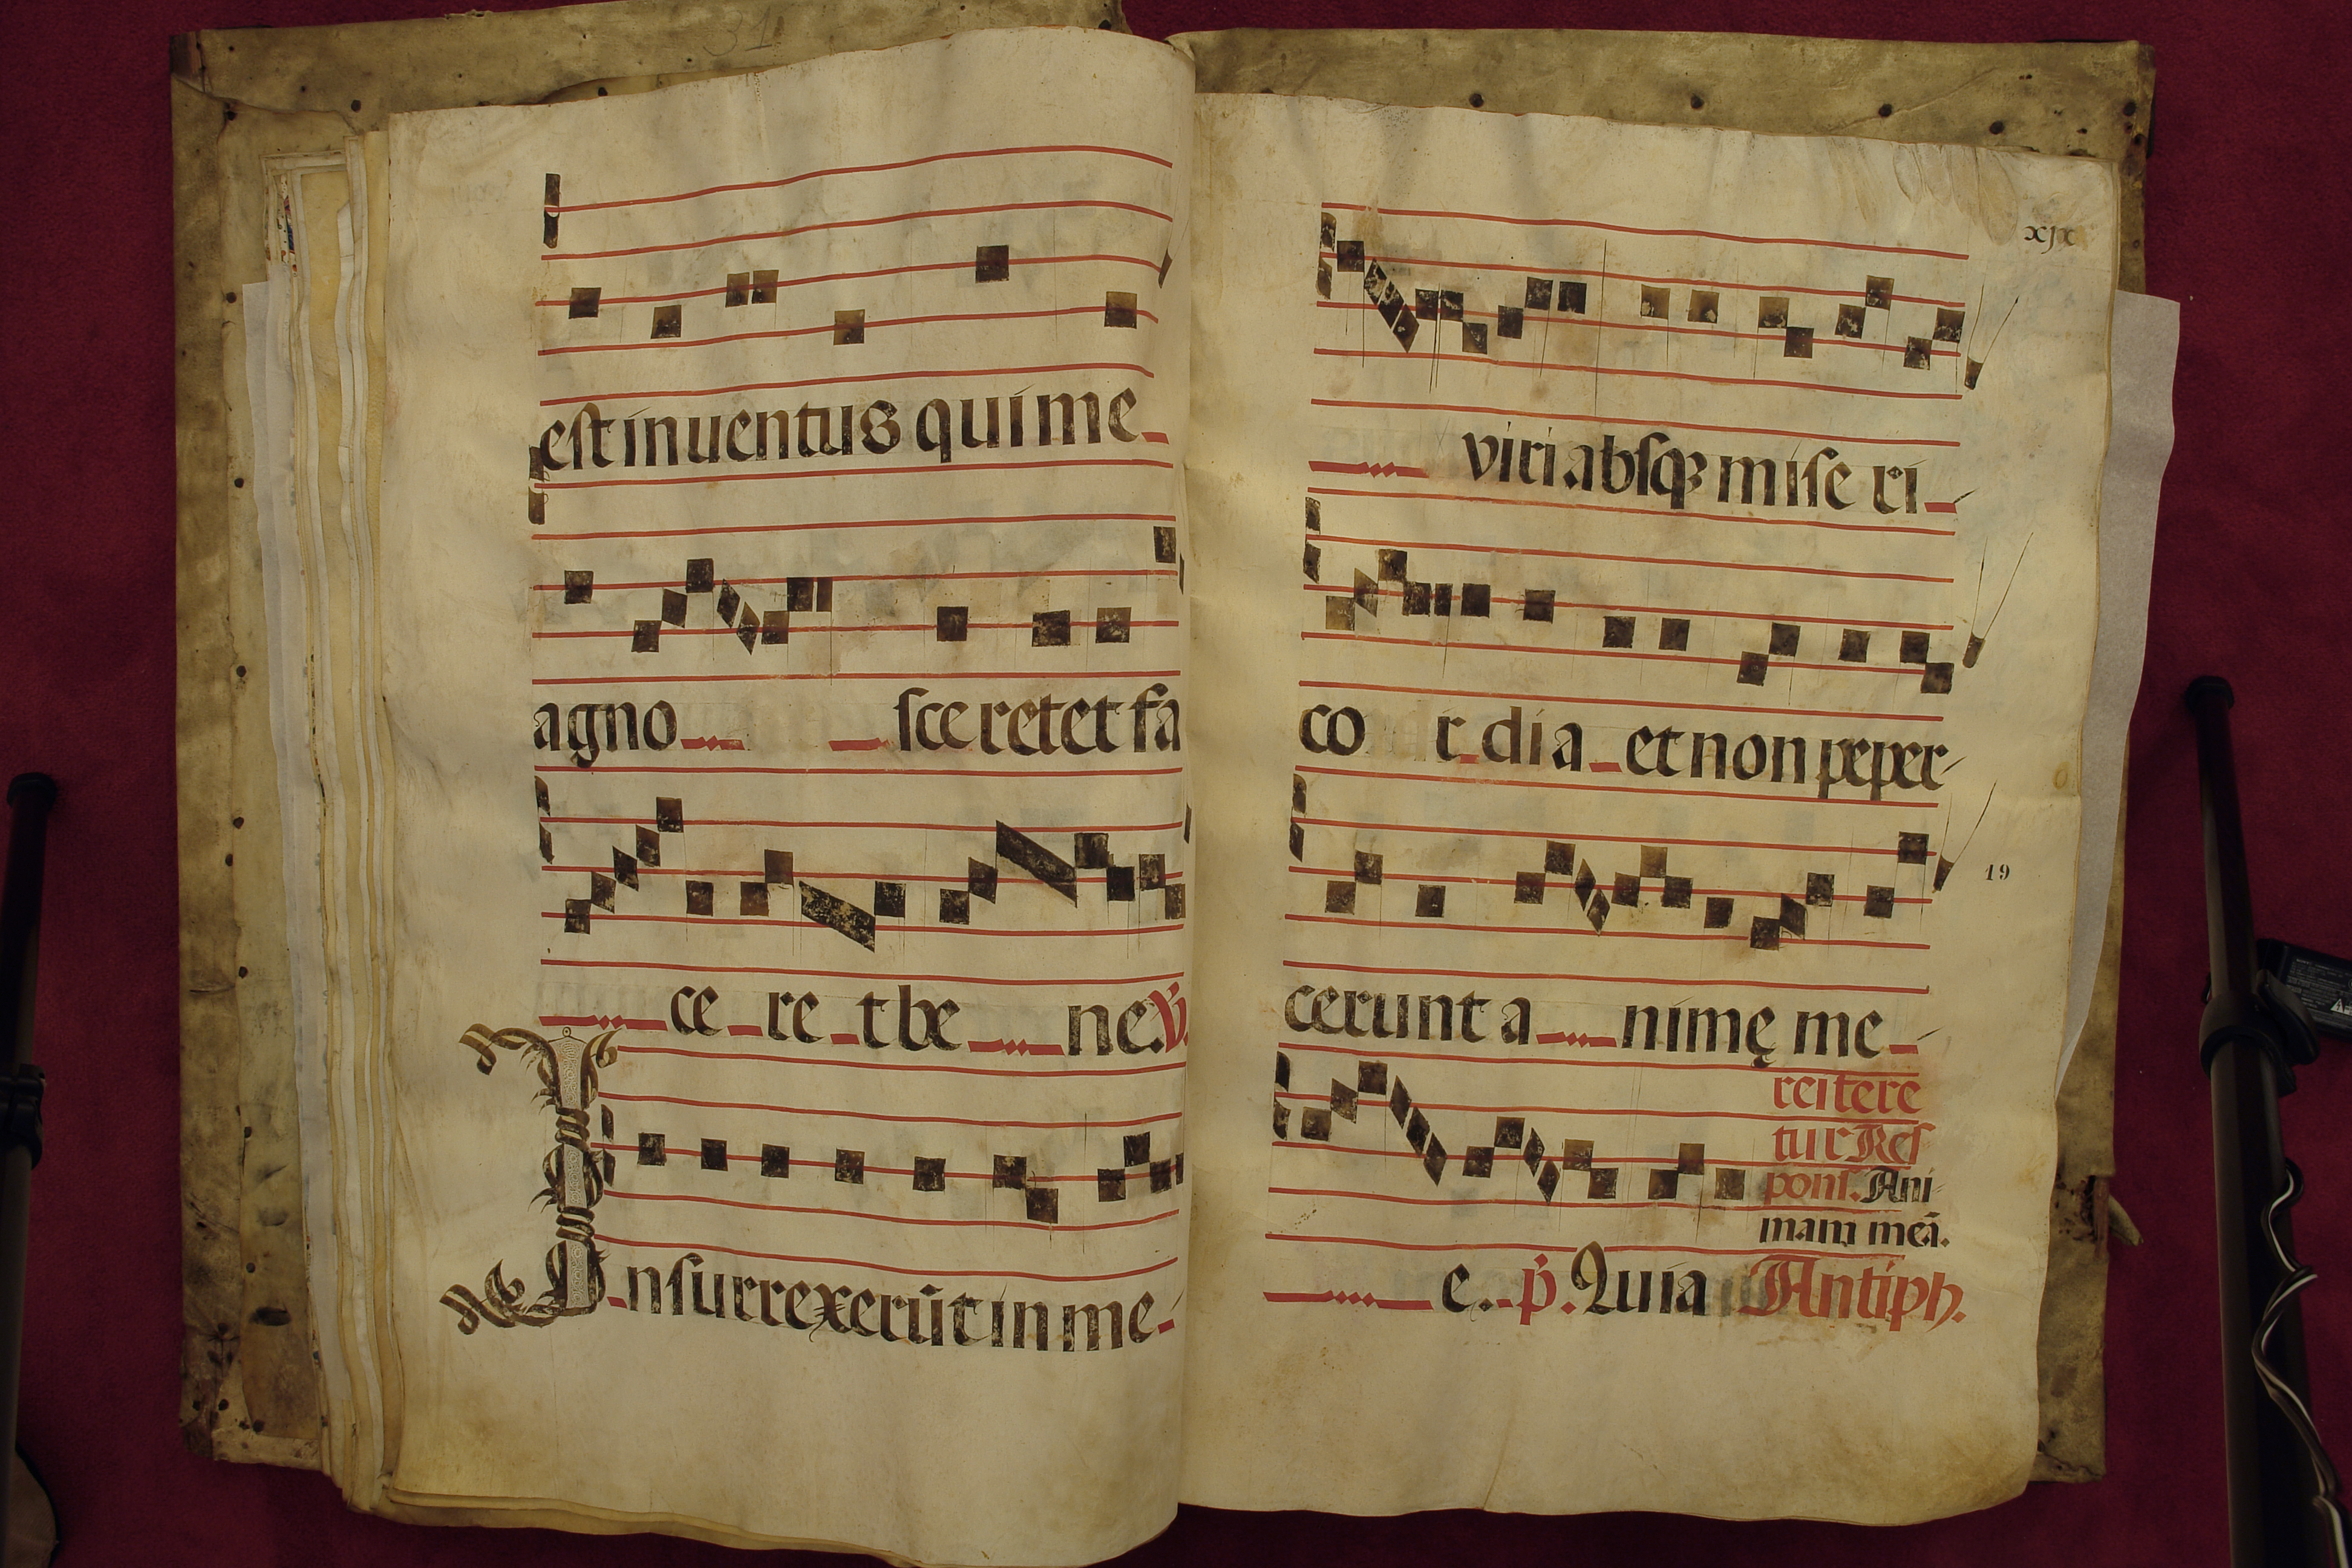 31
est inuentus qui me
agno sce ret et fa
ce re t be ne. ℣.
Insurrexerūt in me
xjx
viri absqꝫ mise ri
co r dia et non peper
19
cerunt a nimę me
reitere
tur Res
pons. Ani
mam meā.
e. p̄. Quia Antiph.